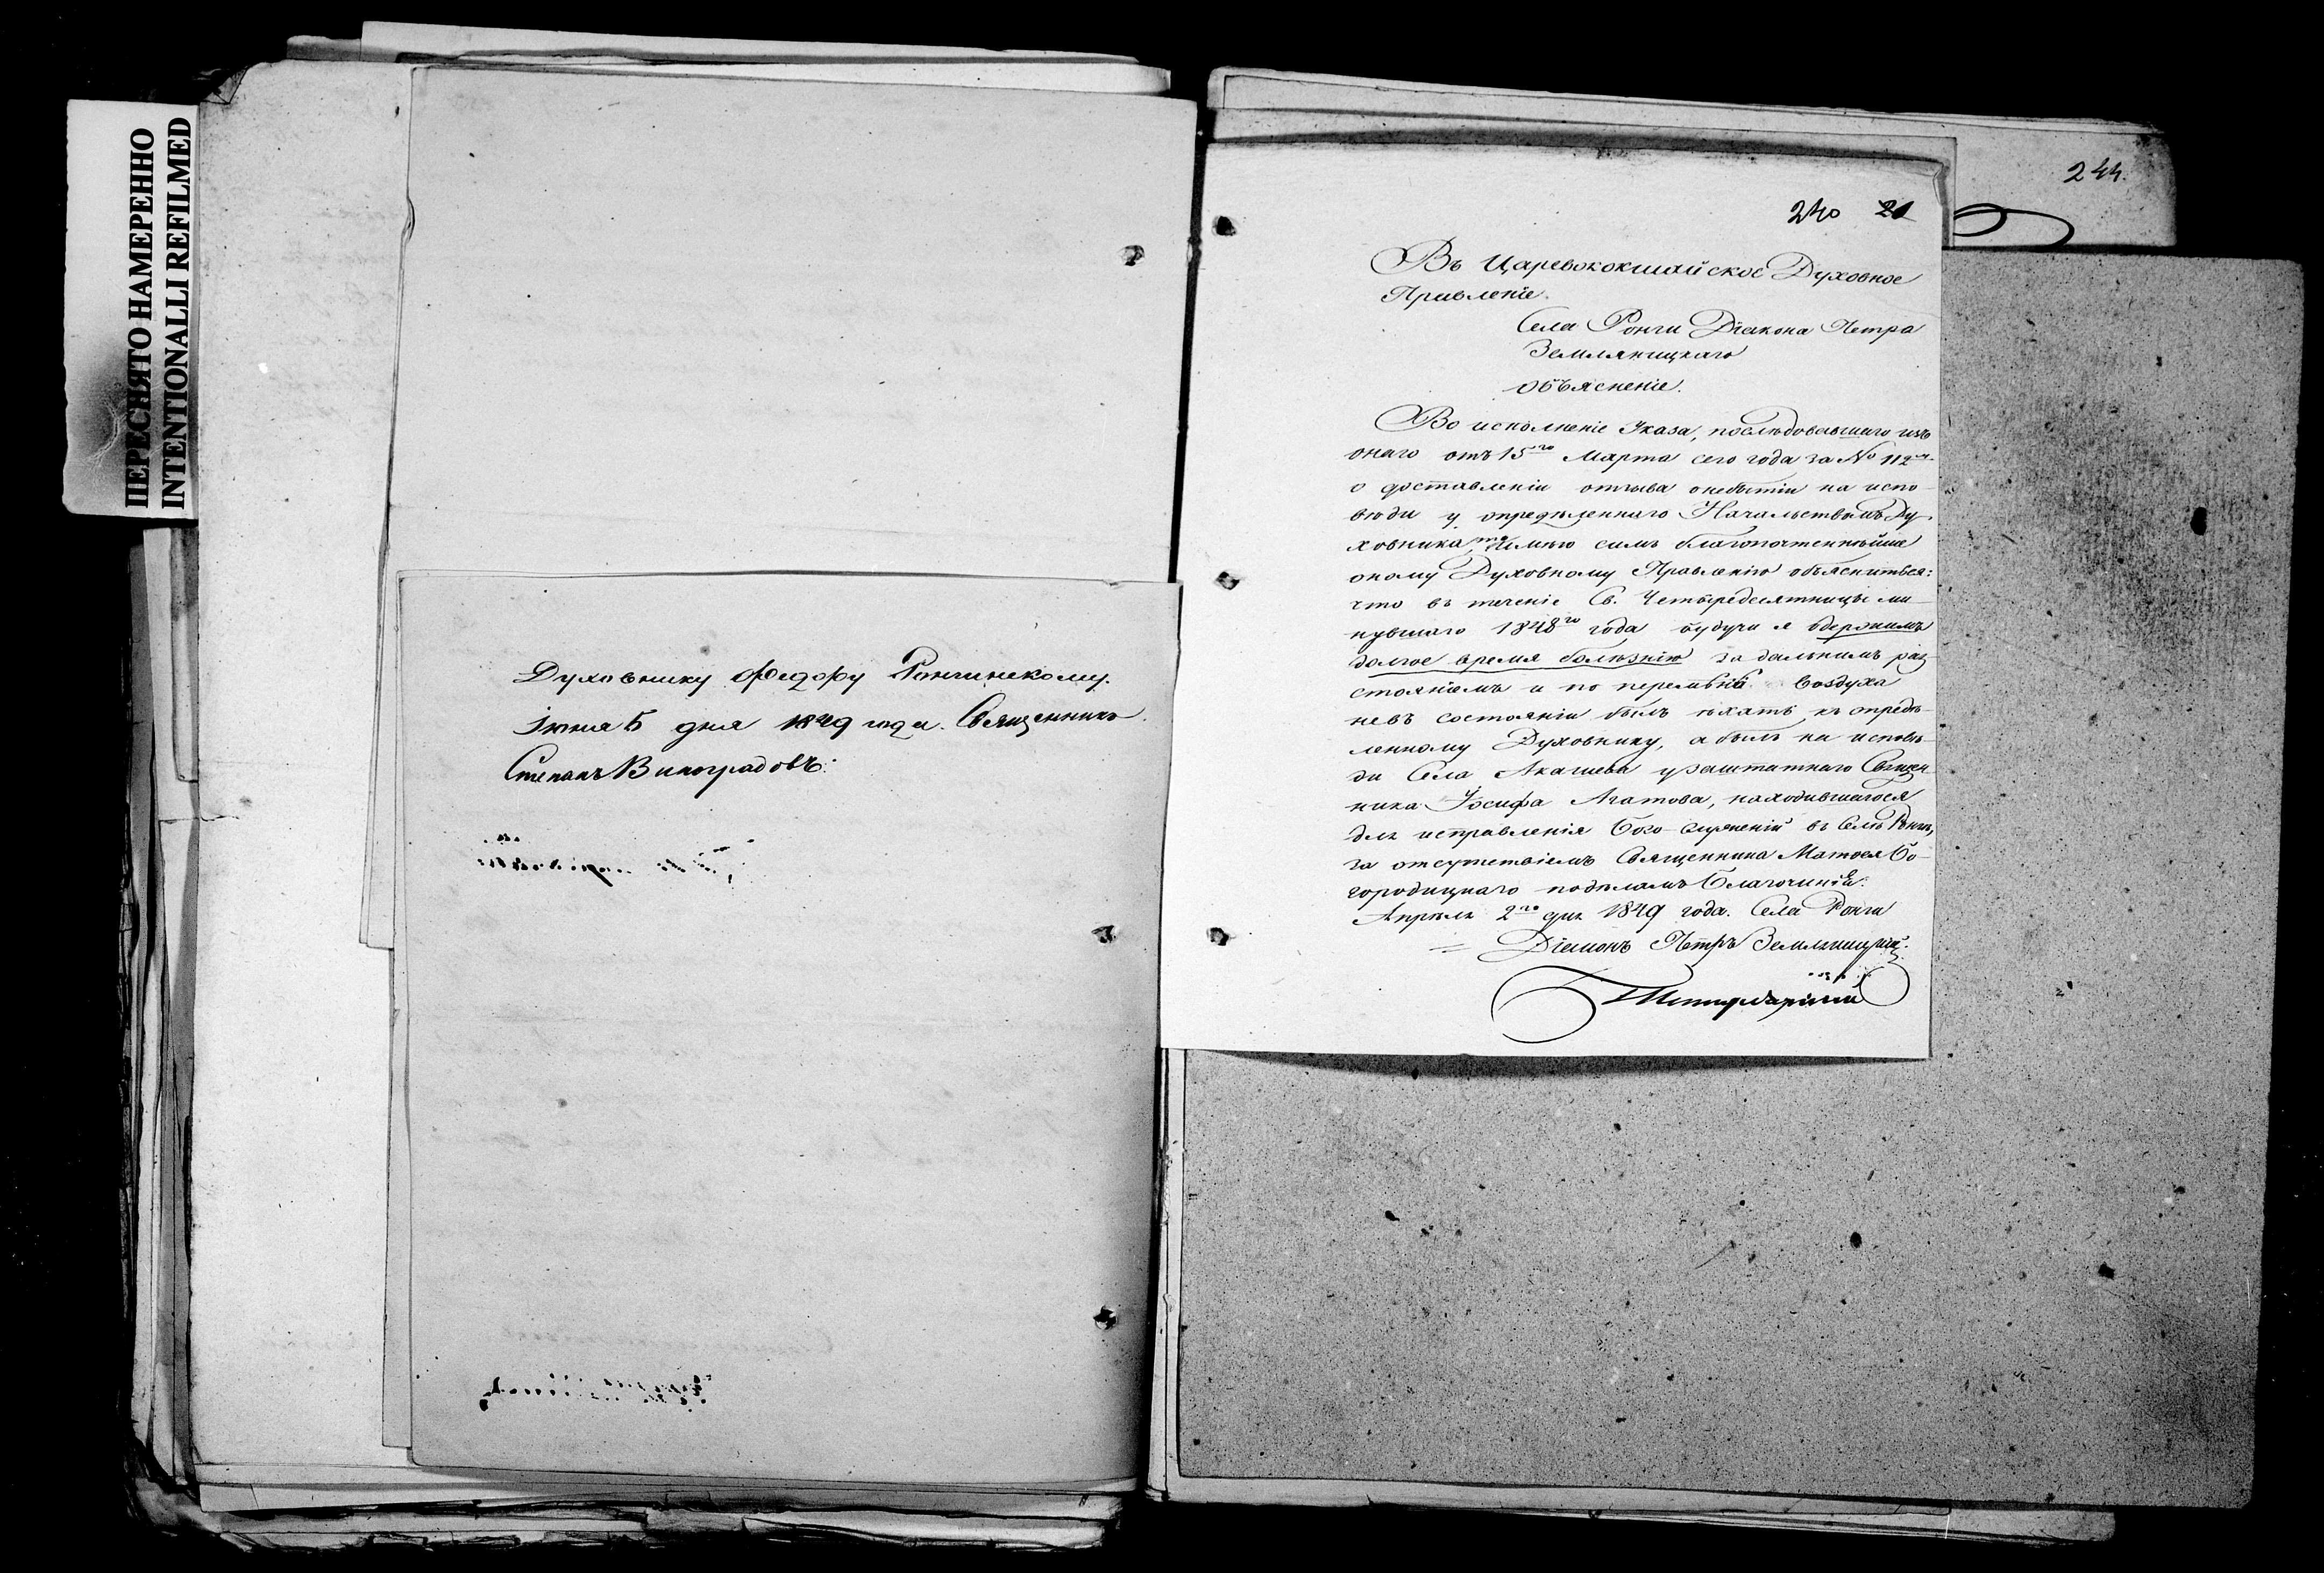 ПЕРЕСНЯТО НАМЕРЕННО
INTENTIONALLI REFILMED
Духовнику Федору Ронгинскому.
Іюня 5 дня 1849 года. Священникъ
Степанъ Виноградовъ.
244.
240 21
Въ Царевококшайское Духовное
Правленіе.
Села Ронги Діакона Петра
Земляницкаго
Объясненіе.
Во исполненіе Указа, послѣдовавшаго изъ
онаго отъ 15го Марта сего года за № 112м
о доставленіи отзыва о небытіи на испо-
вѣди у опредѣленнаго Начальствомъ Ду-
ховника, имѣю симъ благопочтеннѣйше
оному Духовному Правленію объясниться:
что въ теченіе Св. Четыредесятницы ми-
нувшаго 1848го года будучи я одержимъ
долгое время болѣзнію за дальнимъ раз-
стояніемъ и по перемѣнѣ воздуха
невъ состояніи былъ ѣхать къ опредѣ-
ленному Духовнику, а былъ на исповѣ-
ди Села Акашева узаштатнаго Священ-
ника Іосифа Агатова, находившагося
для исправленія Бого-служеній въ Селѣ Ронгѣ,
за отсутствіемъ Священника Матѳея Бо-
городицкаго подѣламъ Благочинія.
Апрѣля 2го дня 1849 года. Села Ронги
Діаконъ Петръ Земляницкій.